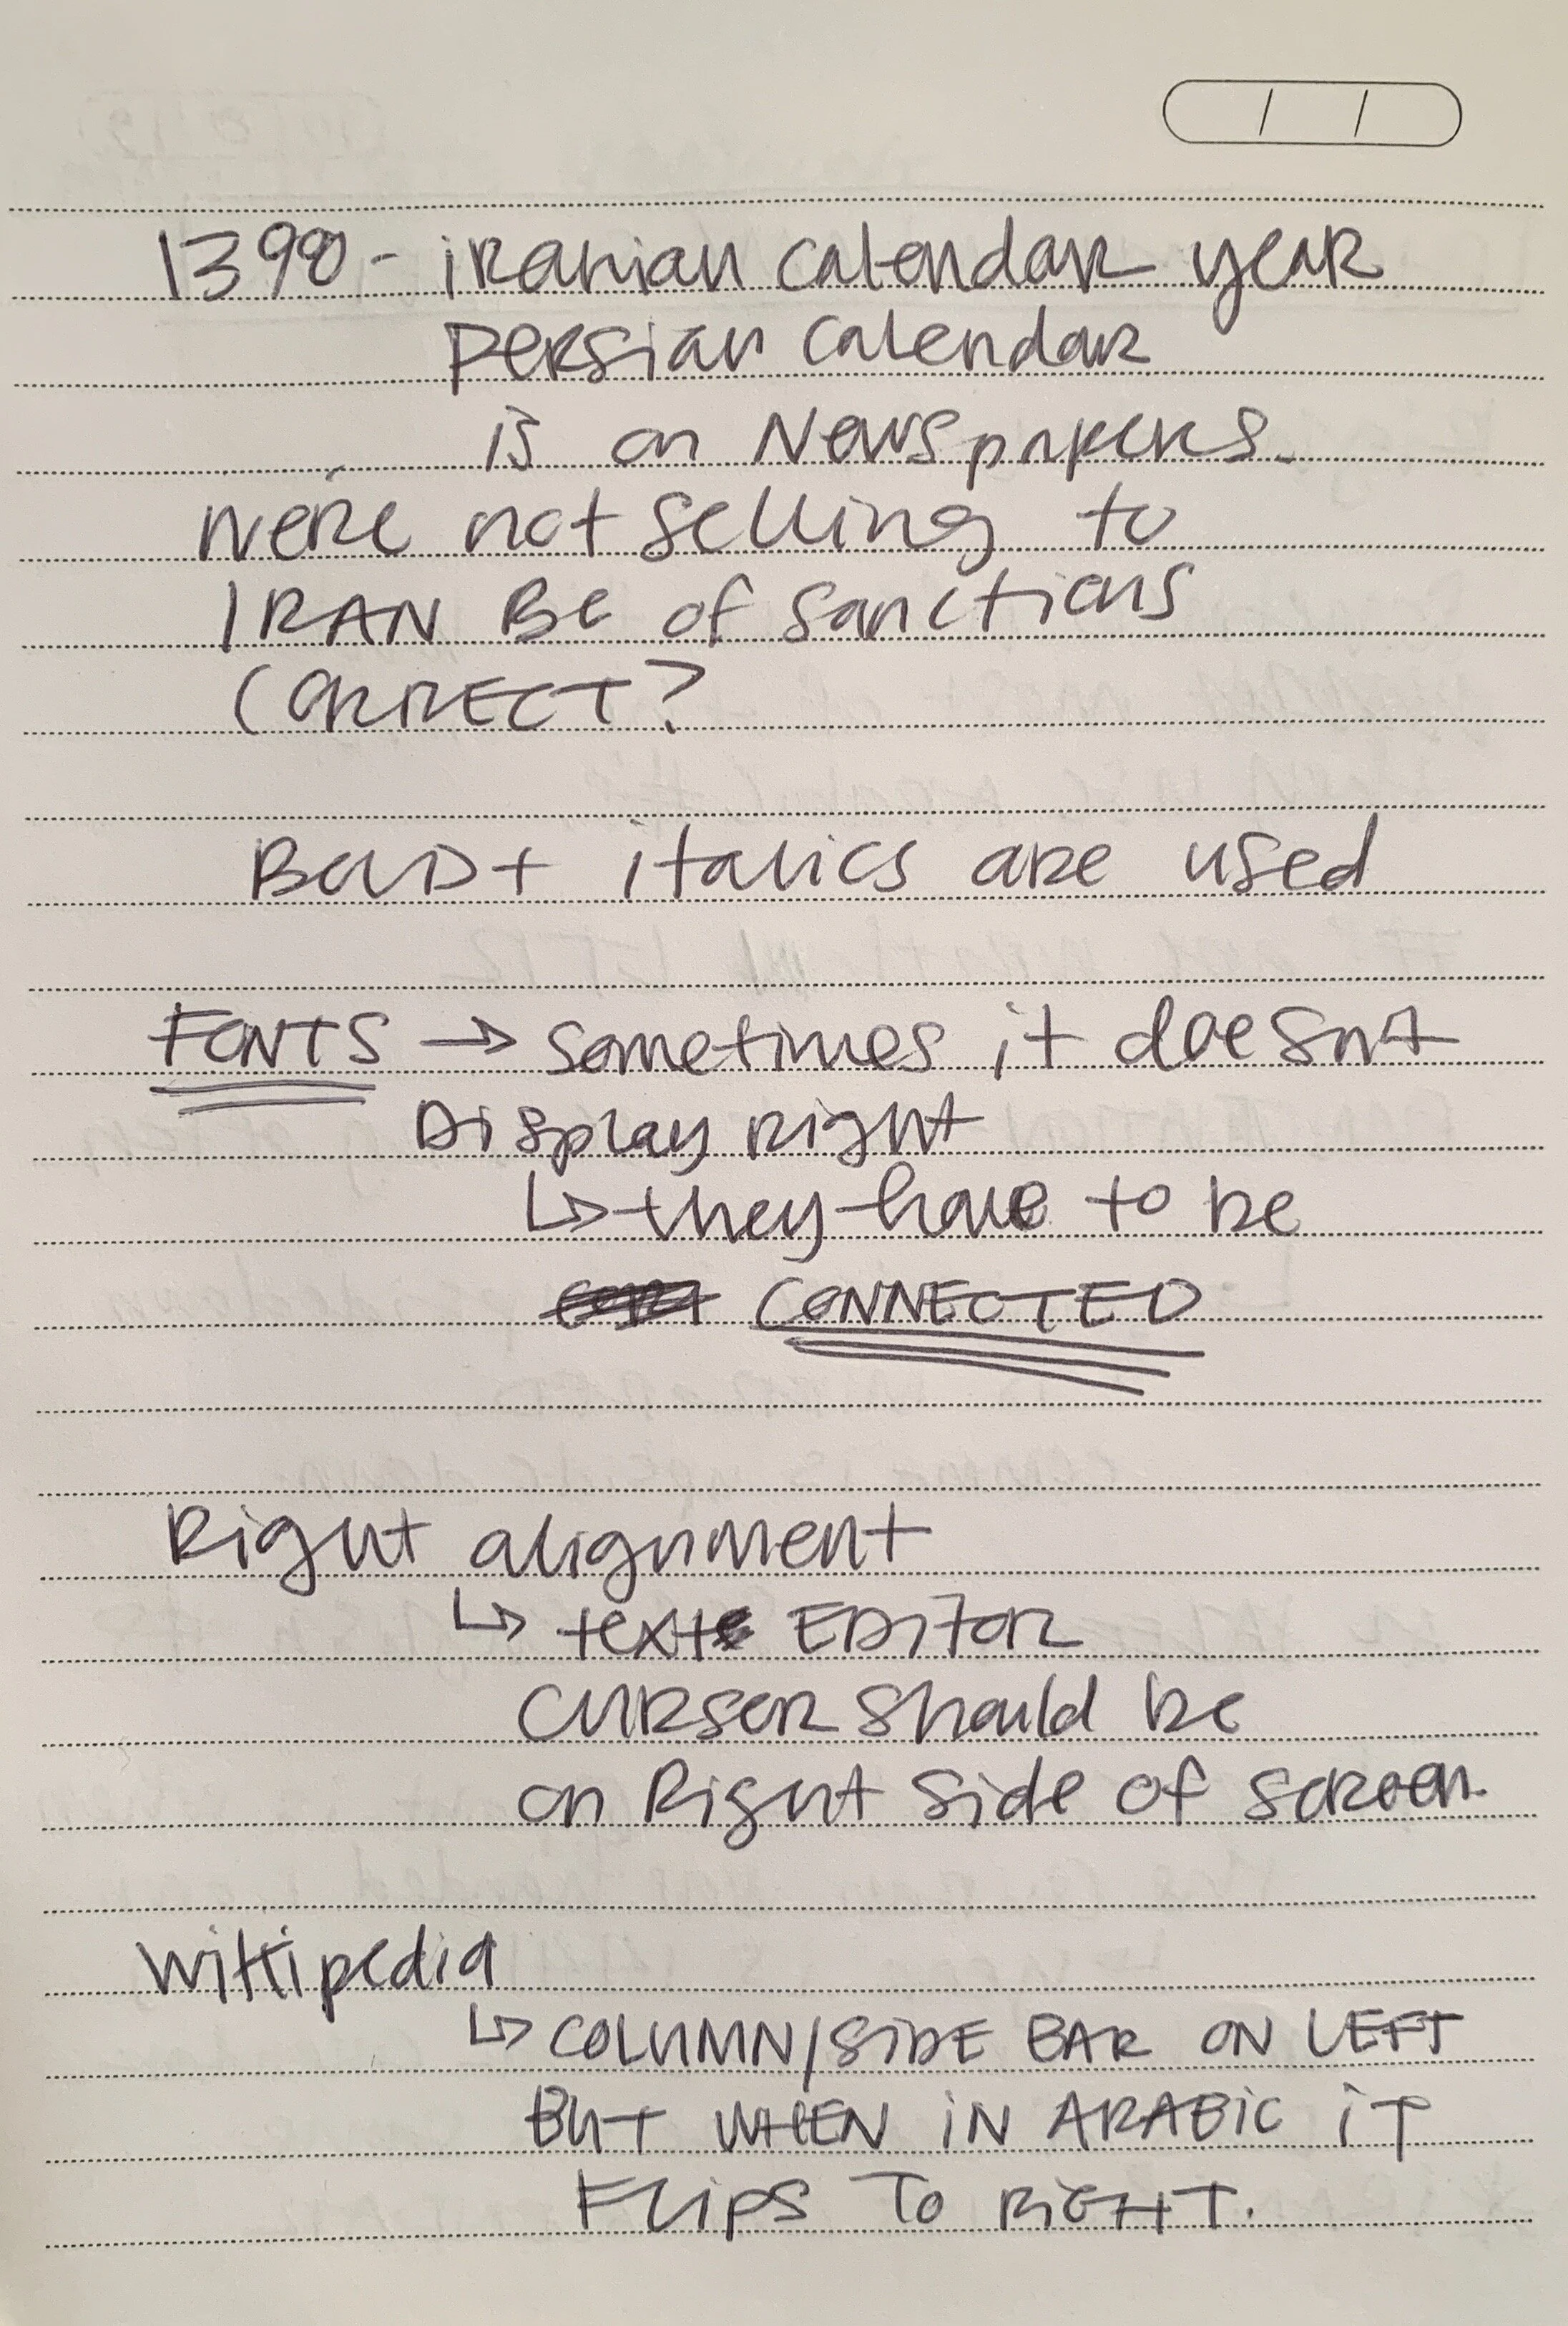 1398 - iranian calendar year
persian calendar
is on Newspapers.
we're not selling to
IRAN BC of sanctions
CORRECT?
BOLD + italics are used
FONTS → sometimes it doesn't
Display right
↳ they have to be
CONNECTED
Right alignment
↳ text EDITOR
CURSER should be
on Right side of screen.
Wikipedia
↳ COLUMN/SIDE BAR ON LEFT
BUT WHEN IN ARABIC IT
FLIPS TO RIGHT.